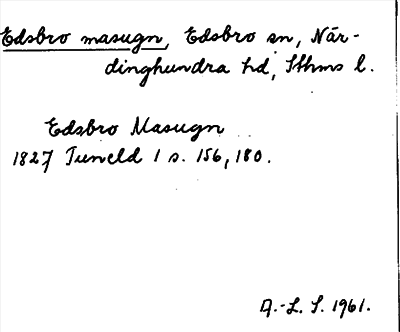 Edsbro masugn, Edsbro sn, När-
dinghundra hd, Sthms l.
Edsbro Masugn
1827 Tuneld 1 s. 156, 180.
A.-L. S. 1961.